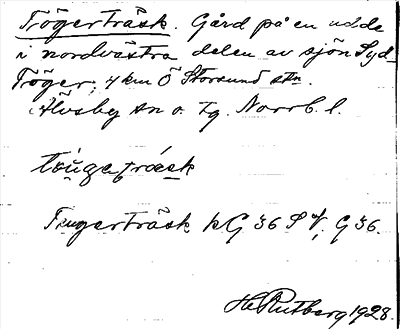 Trögerträsk. Gård på en udde
i nordvästra delen av sjön Syd-
Tröger, 4 km Ö Storsund stn.
Älvsby sn o. tg. Norrb. l.
Trugerträsk kG 36 SV, G 36.
H. Rutberg 1928.